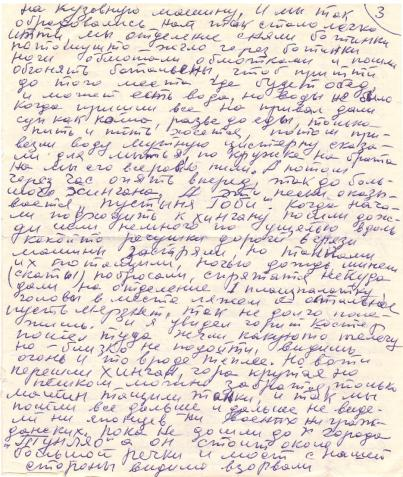 на кузовную машину, и мы так 3
обрадовались, нам так стало легко
идти, мы отделение сняли ботинки
потомушто жгло через ботинки
ноги обмотали обмотками и пошли
обгонять батальены, чтоб притти
до того места, где будет обед
и может есть вода, но воды не было
Когда пришли все на привал дали
суп как каша, разве до еды, только
пить и пить хочется, потом при-
везли воду мутную цистерну сказа-
ли для мытья, по кружке на брата
но мы его всеровно пили. А потом
через час опять вперед, так до боль-
шого Хингана. А эти пески оказы-
вается пустыня Гоби. Когда нача-
ли подходить к хингану, пошли дож-
ди шли немного по ущелью вдоль
какойто речушки дорога в грязи
машины застряли, но танками
их вытащили, ночью дождь шинели
(скаты) побросали, спрятатся некуда
дали на отделение 1 плащпалатку
головы в места ляжем а остальное
пусть мерзнет, так не долго поле-
жишь. и я увидел горит костер
пошел туда, жгли какуюто телегу
но близко не подойти, видишь
огонь и то вроде теплее. Но вот и
перешли хинган, гора крутая но
пешком можно забратся, только
машин тащили танки, и так мы
пошли все дальше и дальше не виде-
ли ни японцев ни военых ни граж-
данских, пока не дошли до г города
"Тунляо" а он стоит около
большой речки и мост с нашей
стороны видимо взорвали